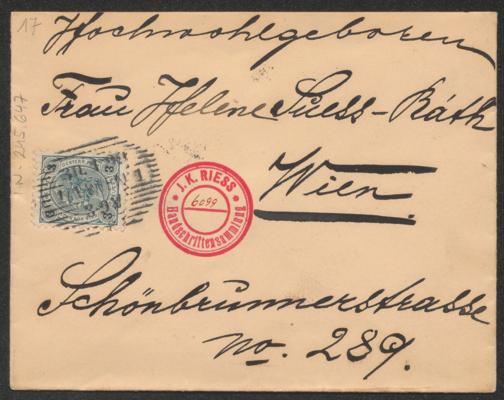 17
IN 245647
Hochwohlgeboren
Frau Helene Suess-Ráth
Wien.
J. K. RIESS
6099
Handschriftensammlung
Schönbrunnerstrasse
No. 289.